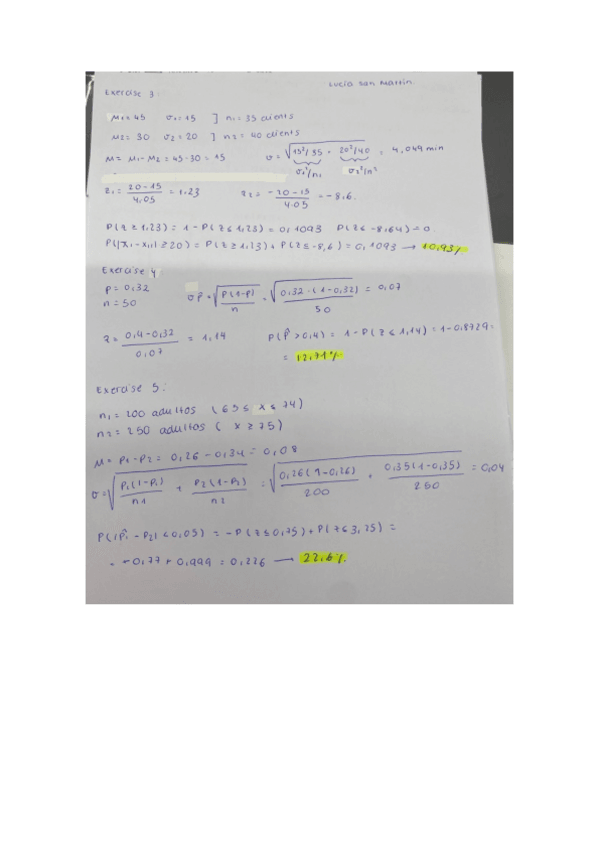 Lucia San Martin.
Exercise 3:
M1 = 45 σ1 = 15 ] n1 = 35 clients
M2 = 30 σ2 = 20 ] n2 = 40 clients
M = M1 - M2 = 45 - 30 = 15 σ = √15²/35 + 20²/40 = 4,049 min
σ1²/n1 σ2²/n2
z1 = 20-15/4.05 = 1,23 z2 = -20-15/4.05 = -8,6.
P(z ≥ 1,23) = 1 - P(z ≤ 1,23) = 0,1093 P(z ≤ -8,64) = 0.
P(|x̄1 - x̄2| ≥ 20) = P(z ≥ 1,23) + P(z ≤ -8,6) = 0,1093 → 10,93%
Exercise 4
P = 0,32
n = 50 σp̂ = √P(1-P)/n = √0,32·(1-0,32)/50 = 0,07
z = 0,4-0,32/0,07 = 1,14 P(p̂ > 0,4) = 1 - P(z ≤ 1,14) = 1 - 0,8729 =
= 12,71%
Exercise 5:
n1 = 200 adultos (65 ≤ x ≤ 74)
n2 = 250 adultos (x ≥ 75)
M = P1 - P2 = 0,26 - 0,34 = 0,08
σ = √P1(1-P1)/n1 + P2(1-P2)/n2 = √0,26(1-0,26)/200 + 0,35(1-0,35)/250 = 0,04
P(|P̂1 - P2| < 0,05) = -P(z ≤ 0,75) + P(z ≤ 3,25) =
= -0,77 + 0,999 = 0,226 → 22,6%.